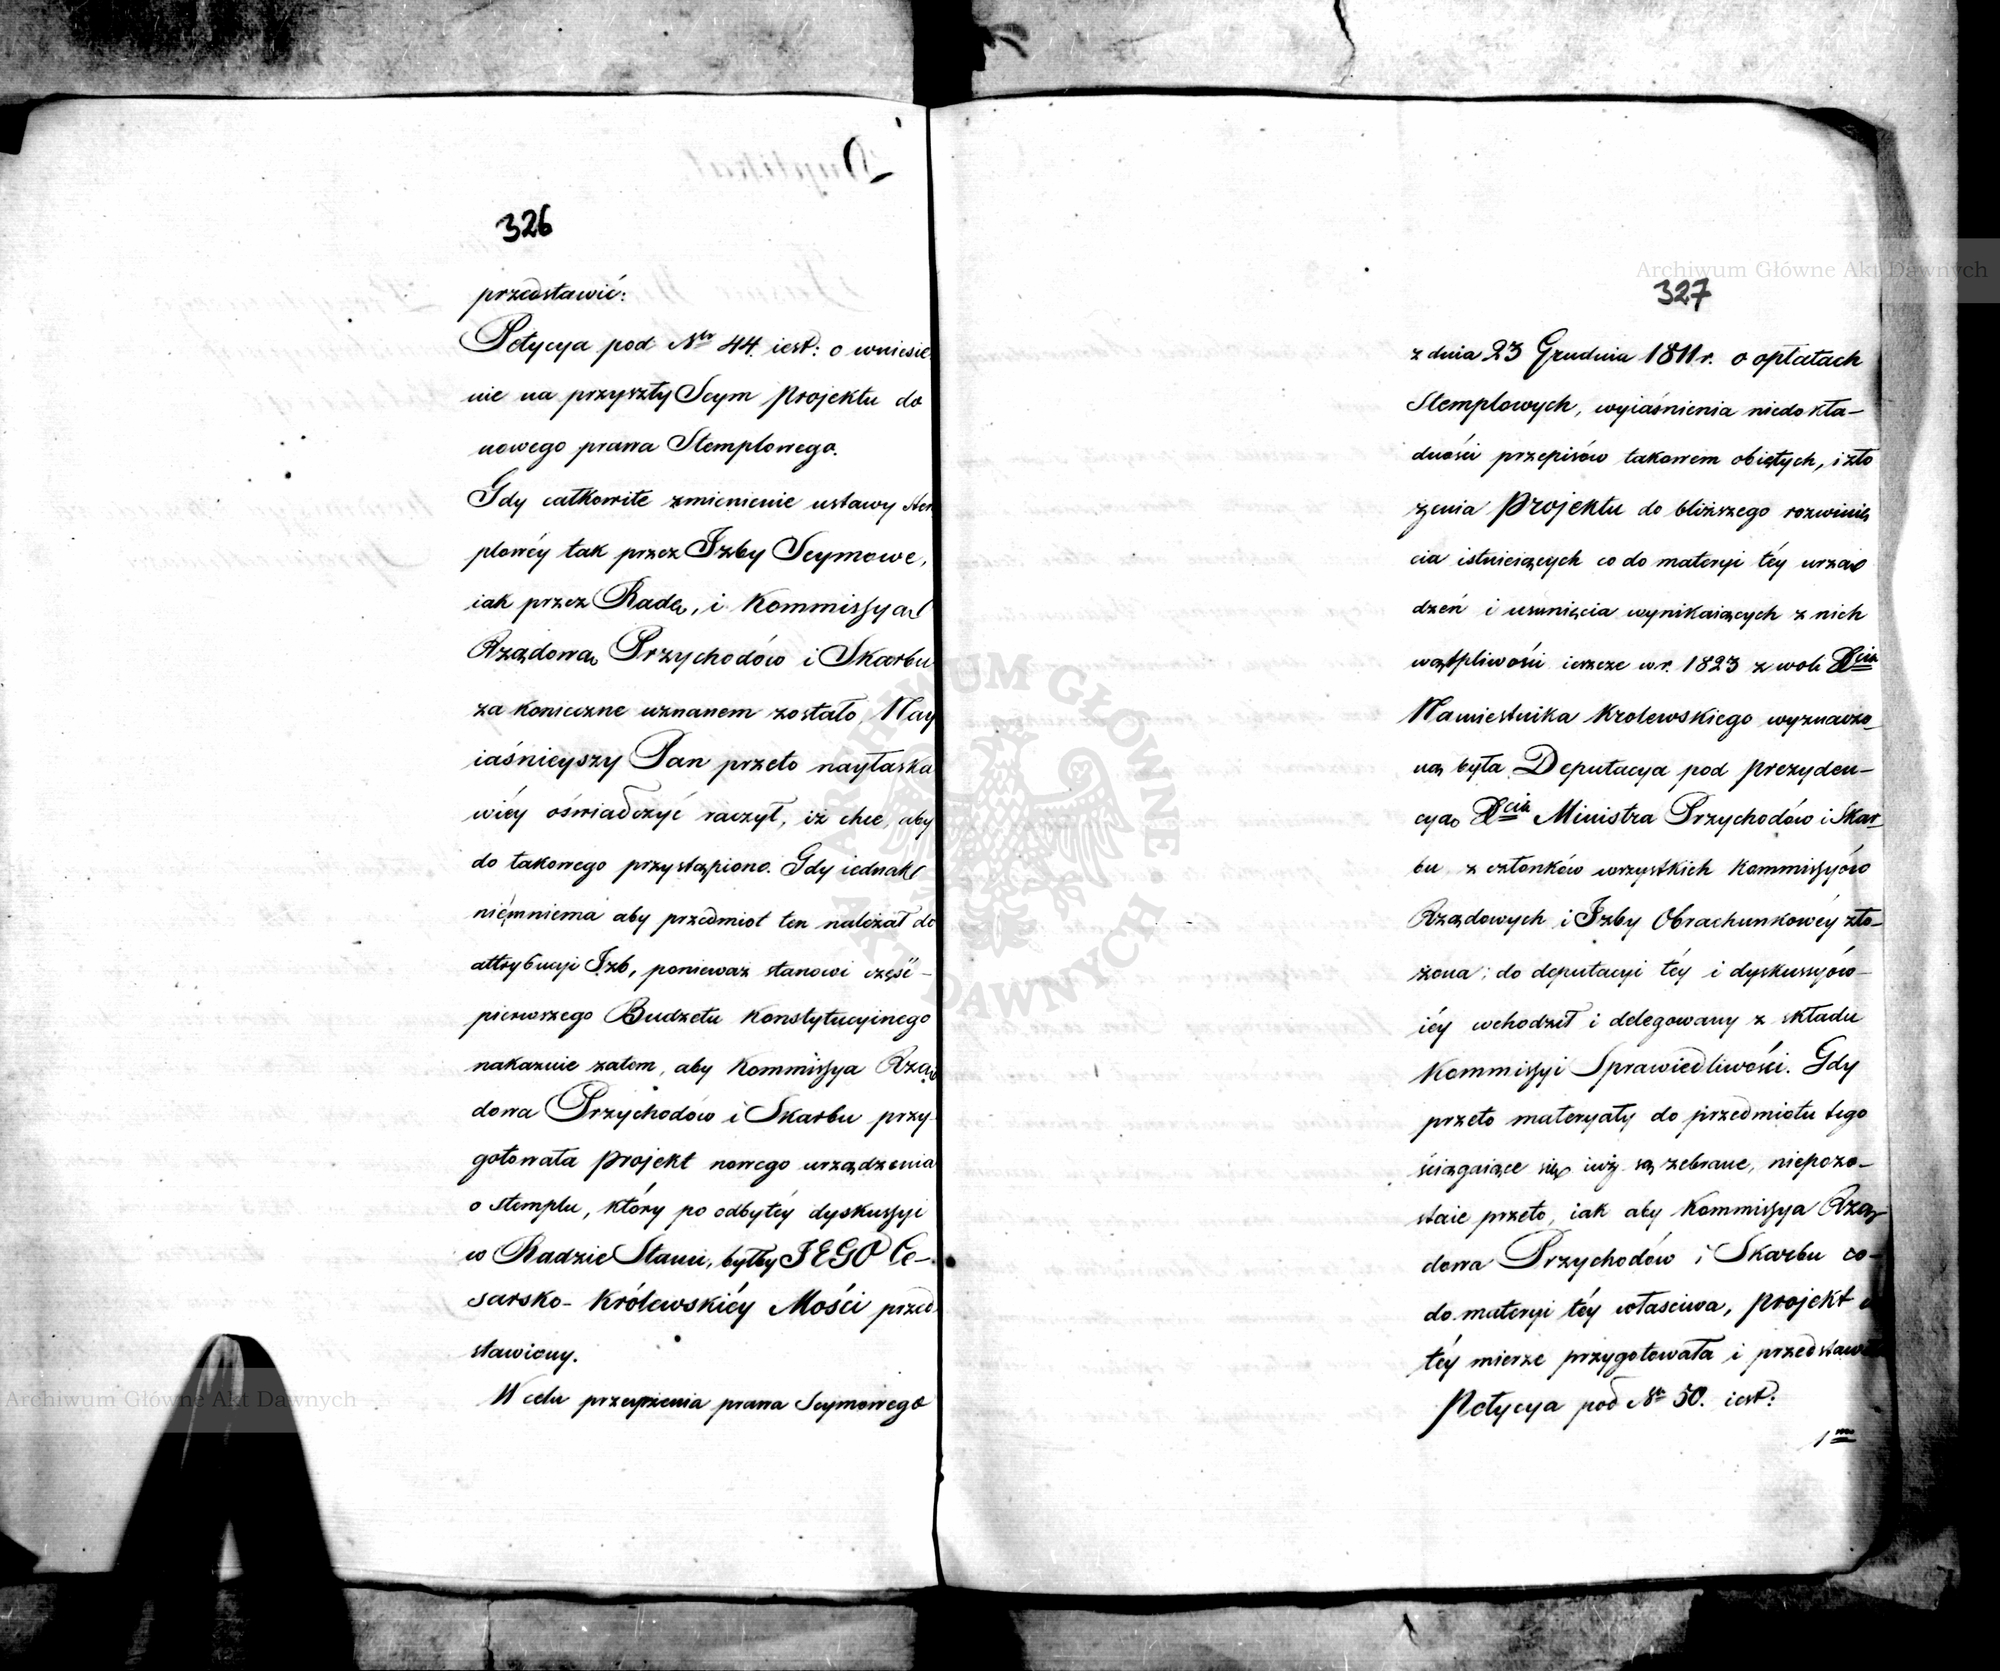 326
przedstawić:
Petycya pod Nro 44. iest: o wniesie
nie na przyszły Seym Projektu do
nowego prawa Stemplowego.
Gdy całkowite zmienienie ustawy stem
plowéy tak przez Izby Seymowe,
iak przez Radę, i Kommissyą
Rządową Przychodów i Skarbu
za konieczne uznanem zostało, Nay
iaśnieyszy Pan przeto nayłaska
wiéy oświadczyć raczył, iż chce, aby
do takowego przystąpiono. Gdy iednak
niémniema aby przedmiot ten należał do
attrybucyi Izb, ponieważ stanowi część
pierwszego Budżetu Konstytucyinego
nakazuie zatem, aby Kommissya Rzą
dowa Przychodów i Skarbu przy
gotowała projekt nowego urządzenia
o stemplu, który po odbytéy dyskussyi
w Radzie Stanu, byłby JEGO Ce-
sarsko-Królewskiéy Mości przed
stawiony.
W celu przeyrzenia prawa Seymowego
327
z dnia 23 Grudnia 1811 r. o opłatach
Stemplowych, wyiaśnienia niedokła-
dności przepisów takowem obiętych, i zło
żenia Projektu do bliższego rozwinię
cia istnieiących co do materyi téy urzą
dzeń i usunięcia wynikaiących z nich
wątpliwości ieszcze w r. 1823 z woli Xcia
Namiestnika Krolewskiego wyznaczo-
ną była Deputacya pod prezyden-
cyą Xcia Ministra Przychodów i Skar-
bu z członków wszystkich Kommissyów
Rządowych i Izby Obrachunkowéy zło-
żona; do deputacyi téy i dyskussyów
iéy wchodził i delegowany z składu
Kommissyi Sprawiedliwości. Gdy
przeto materyały do przedmiotu tego
ściągaiące się iuż są zebrane, niepozo-
staie przeto, iak aby Kommissya Rzą-
dowa Przychodów i Skarbu co-
do materyi téy właściwa, projekt w
téy mierze przygotowała i przedstawiła
Petycya pod Nr 50. iest:
1mo
Archiwum Główne Akt Dawnych
Archiwum Główne Akt Dawnych
ARCHIWUM GŁÓWNE AKT DAWNYCH